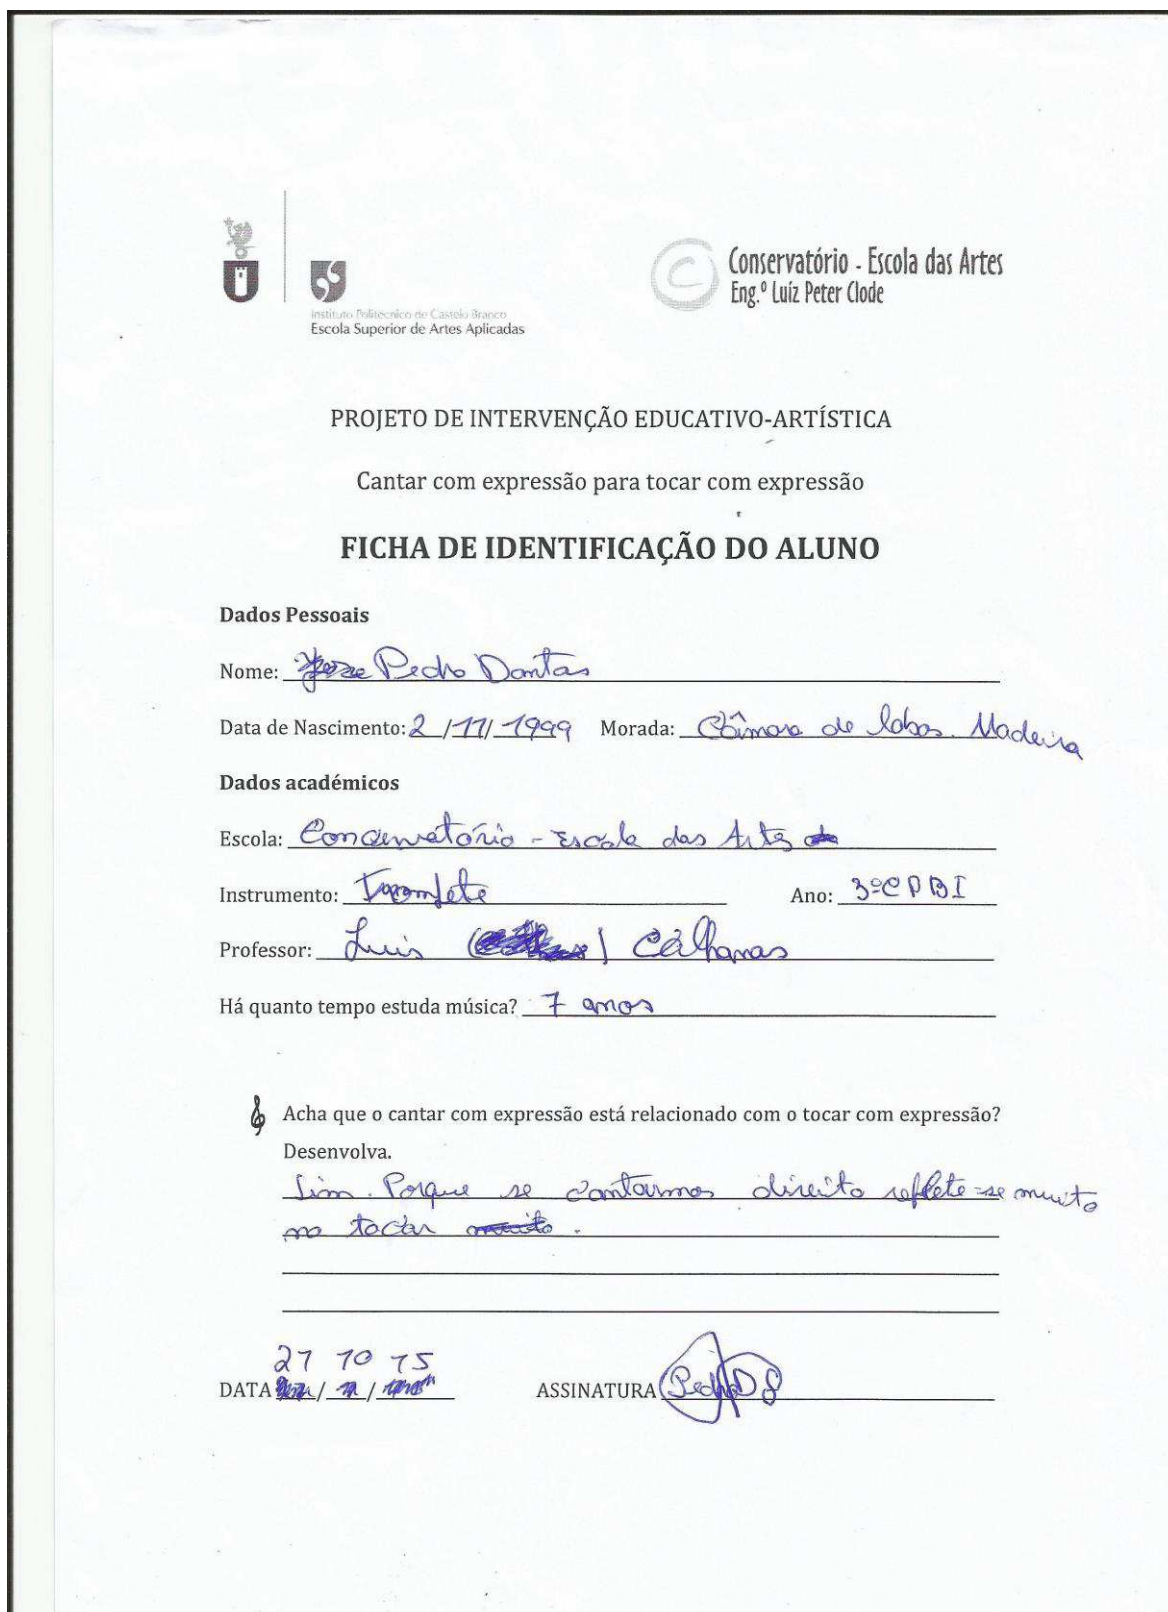 Conservatório - Escola das Artes
Eng.º Luíz Peter Clode
Instituto Politécnico de Castelo Branco
Escola Superior de Artes Aplicadas
PROJETO DE INTERVENÇÃO EDUCATIVO-ARTÍSTICA
Cantar com expressão para tocar com expressão
FICHA DE IDENTIFICAÇÃO DO ALUNO
Dados Pessoais
Nome: Pedro Dantas
Data de Nascimento: 2 /11/ 1999 Morada: Câmara de lobos. Madeira
Dados académicos
Escola: Conservatório - Escola das Artes
Instrumento: Trompete Ano: 3ºCPBI
Professor: Luis Calhanas
Há quanto tempo estuda música? 7 anos
Acha que o cantar com expressão está relacionado com o tocar com expressão?
Desenvolva.
Sim. Porque se cantarmos direito reflete-se muito
no tocar muito.
27 10 15
DATA / / ASSINATURA Pedro D